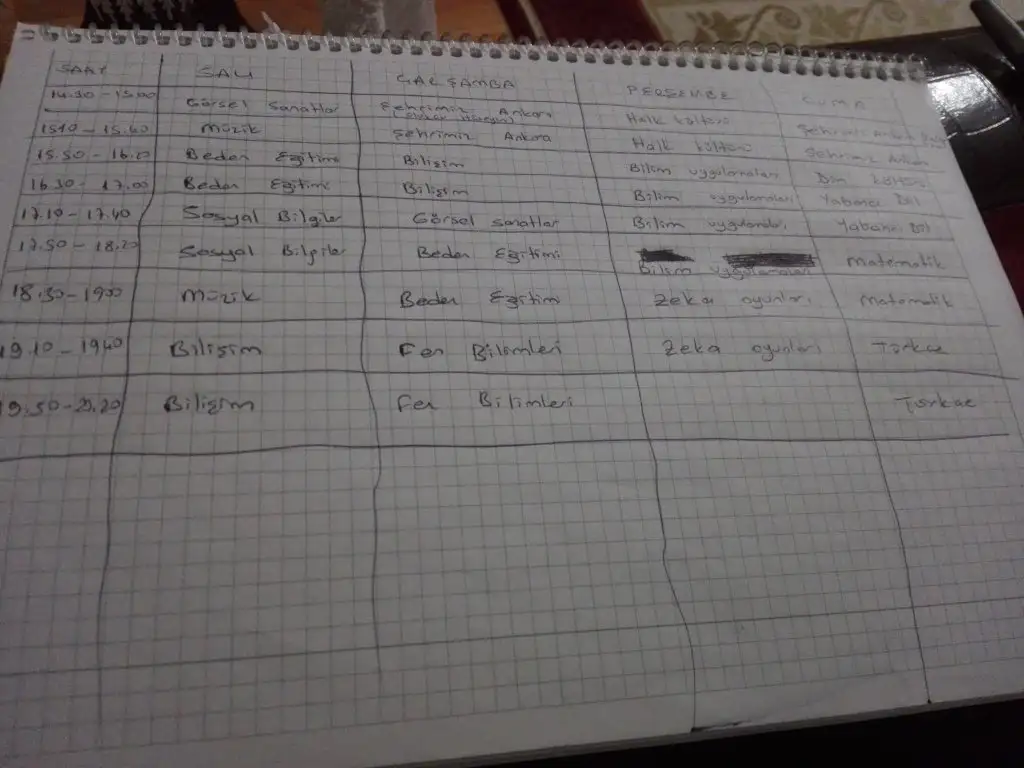 SAAT SALI ÇARŞAMBA PERŞEMBE CUMA
14.30-15.00 Görsel Sanatlar Şehrimiz Ankara Halk kültürü Şehrimiz Ankara
15.10-15.40 Müzik Şehrimiz Ankara Halk kültürü Şehrimiz Ankara
15.50-16.20 Beden Eğitimi Bilişim Bilim uygulamaları Din
16.30-17.00 Beden Eğitimi Bilişim Bilim uygulamaları Yabancı Dil
17.10-17.40 Sosyal Bilgiler Görsel sanatlar Bilim uygulamaları Yabancı Dil
17.50-18.20 Sosyal Bilgiler Beden Eğitimi Bilim uygulamaları Matematik
18.30-19.00 Müzik Beden Eğitim Zeka oyunları Matematik
19.10-19.40 Bilişim Fen Bilimleri Zeka oyunları Türkçe
19.50-20.20 Bilişim Fen Bilimleri Türkçe